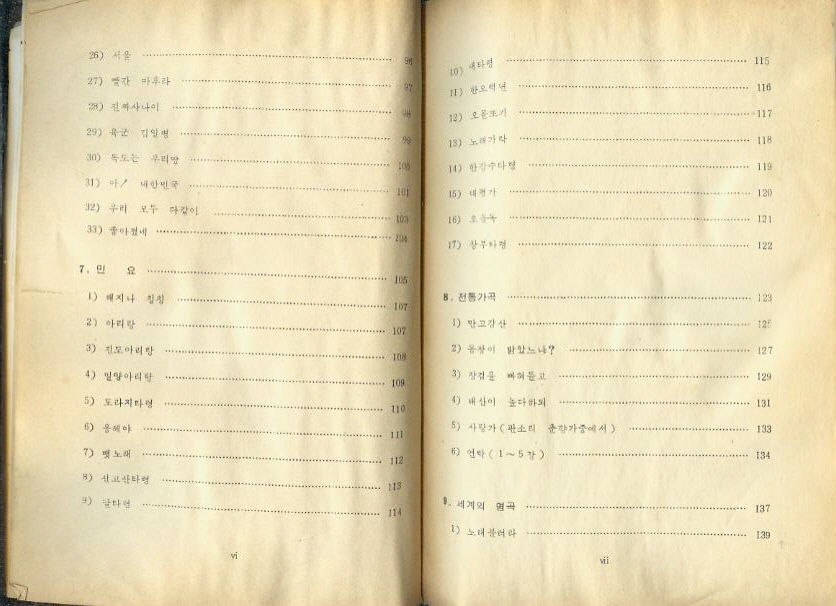 26) 서울 96
27) 빨간 마후라 97
28) 진짜사나이 98
29) 육군 김일병 99
30) 독도는 우리땅 100
31) 아! 대한민국 101
32) 우리 모두 다같이 103
33) 좋아졌네 104
7. 민 요 105
1) 쾌지나 칭칭 107
2) 아리랑 107
3) 진도아리랑 108
4) 밀양아리랑 109
5) 도라지타령 110
6) 옹헤야 111
7) 뱃노래 112
8) 신고산타령 113
9) 달타령 114
vi
10) 새타령 115
11) 한오백년 116
12) 오돌또기 117
13) 노래가락 118
14) 한강수타령 119
15) 태평가 120
16) 오돌독 121
17) 상주타령 122
8. 전통가곡 123
1) 만고강산 125
2) 동창이 밝았느냐? 127
3) 장검을 빠혀들고 129
4) 태산이 높다하되 131
5) 사랑가(판소리 춘향가중에서) 133
6) 언락(1~5장) 134
9. 세계의 명곡 137
1) 노래불러라 139
vii